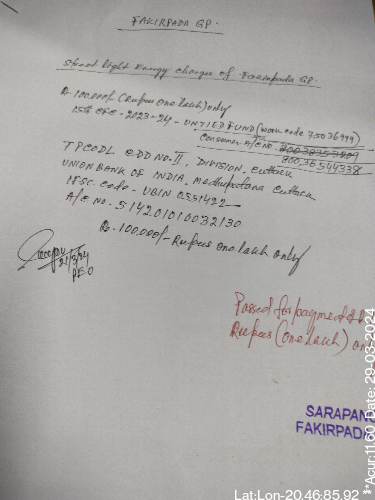 FAKIRPADA GP.
Street light Energy charges of Fakirpada GP.
Rs. 100,000/- (Rupees one lakh) only
15th CFC - 2023-24 - UNTIED FUND (Work code 75036999)
Consumer A/C No.
800,36544338
TPCODL EDD No. II, DIVISION, Cuttack
UNION BANK OF INDIA, Madhupatana Cuttack
IFSC. code - UBIN 0551422
A/c No. 514201010032130
Rs. 100,000/- Rupees one lakh only
21/3/24
PEO
Passed for payment of R
Rupees (one lakh) on
SARAPANC
FAKIRPADA
Lat:Lon-20.46:85.92
**Acur:11.60 Date: 29-03-2024